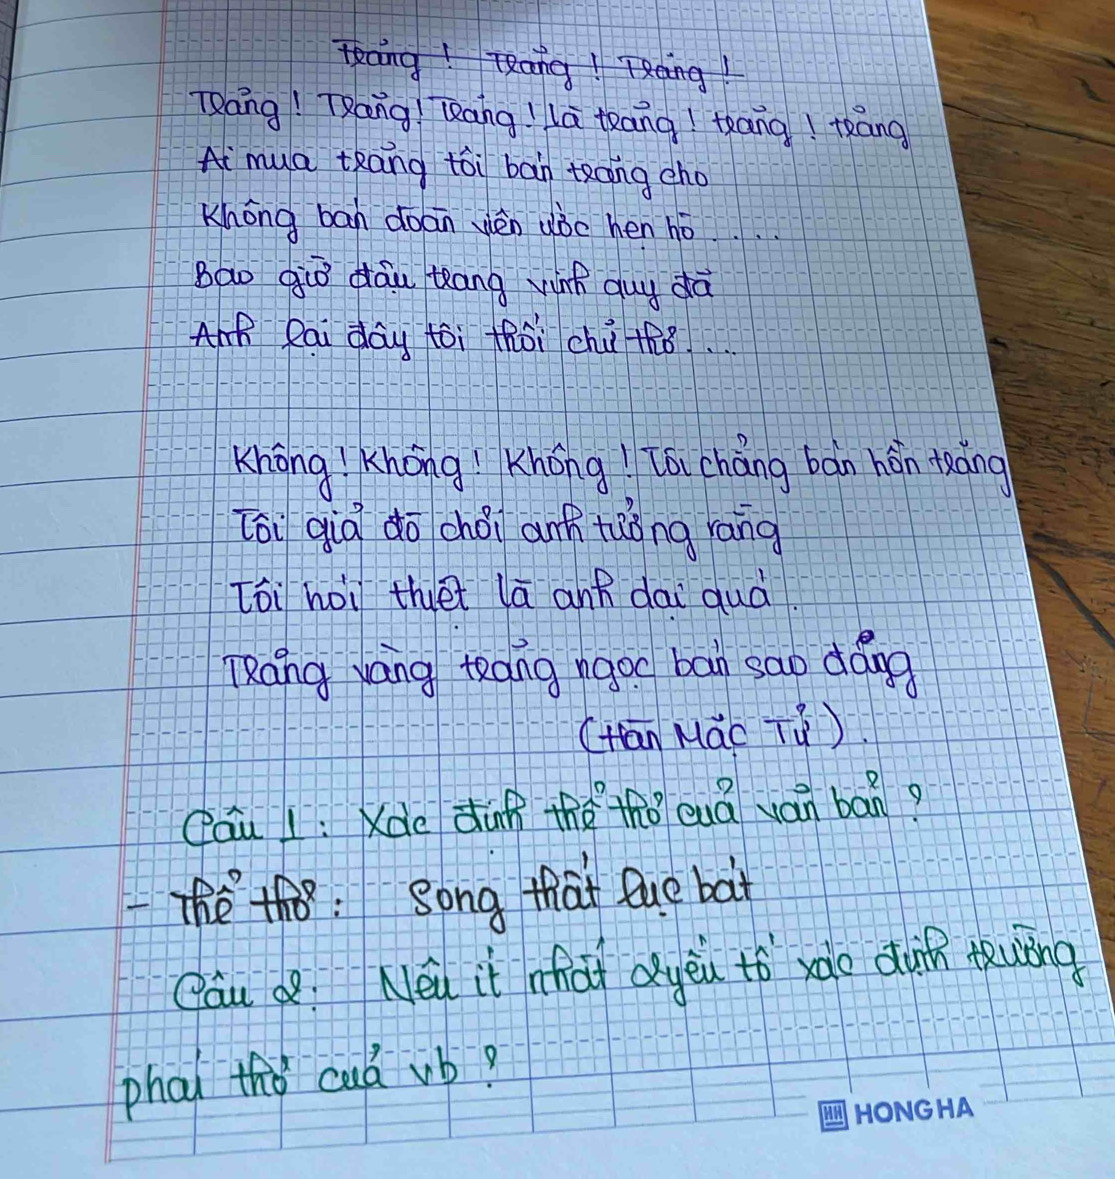 Trăng! Trăng! Trăng!
Trăng! Trăng! Trăng! Là trăng! trăng! trăng
Ai mua trăng tôi bán trăng cho
Không bán đoàn viên ước hẹn hò....
Bao giờ đậu trạng vinh quy đã
Anh lại đây tôi thối chữ thơ....
Không! Không! Không! Tôi chẳng bán hồn trăng
Tôi giả đò chơi anh tưởng rằng
Tôi nói thiệt là anh dại quá.
Trăng vàng trăng ngọc bán sao đặng
(Hàn Mặc Tử).
Câu 1: Xác định thể thơ của văn bản?
- Thể thơ: Song thất lục bát
Câu 2: Nêu ít nhất 2 yếu tố xác định trường
phái thơ của vb?
HH HONG HA